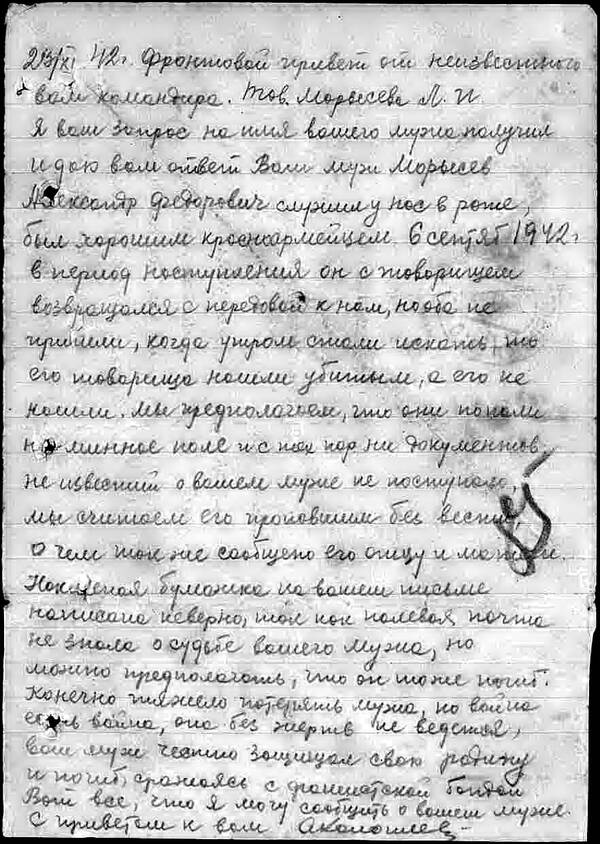 23/XI 42 г. Фронтовой привет от неизвестного
вам командира. Тов. Морысева Л. И.
Я ваш запрос на имя вашего мужа получил
и даю вам ответ Ваш муж Морысев
Александр Федорович служил у нас в роте,
был хорошим красноармейцем. 6 сентяб 1942 г
в период наступления он с товарищем
возвращался с передовой к нам, но оба не
пришли, когда утром стали искать, то
его товарища нашли убитым, а его не
нашли. Мы предполагаем, что они попали
на минное поле и с тех пор ни документов,
не известий о вашем муже не поступало,
мы считаем его пропавшим без вести,
о чем так же сообщено его отцу и матери.
Наклееная бумажка на вашем письме
написана неверно, так как полевая почта
не знала о судьбе вашего мужа, но
можно предполагать, что он тоже погиб.
Конечно тяжело потерять мужа, но война
есть война, она без жертв не ведется,
ваш муж честно защищал свою родину
и погиб, сражаясь с фашистской бандой
Вот все, что я могу сообщить о вашем муже.
С приветом к вам